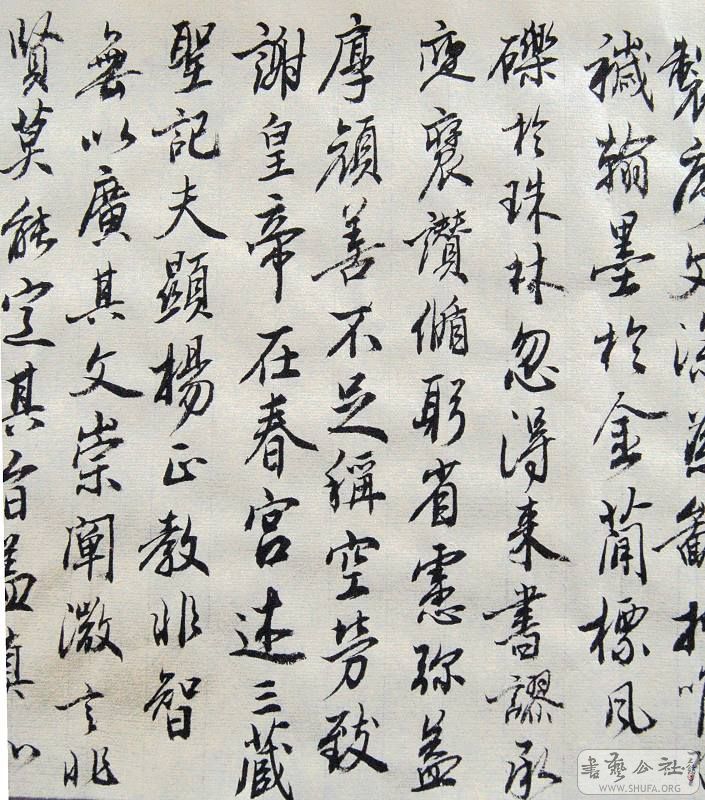 製序文深為鄙拙唯恐
穢翰墨於金簡標瓦
礫於珠林忽得来書謬承
褒讚循躬省慮弥益
厚顔善不足稱空勞致
謝皇帝在春宮述三藏
聖記夫顯揚正教非智
無以廣其文崇闡微言非
賢莫能定其旨蓋真如
書藝公社
WWW.SHUFA.ORG